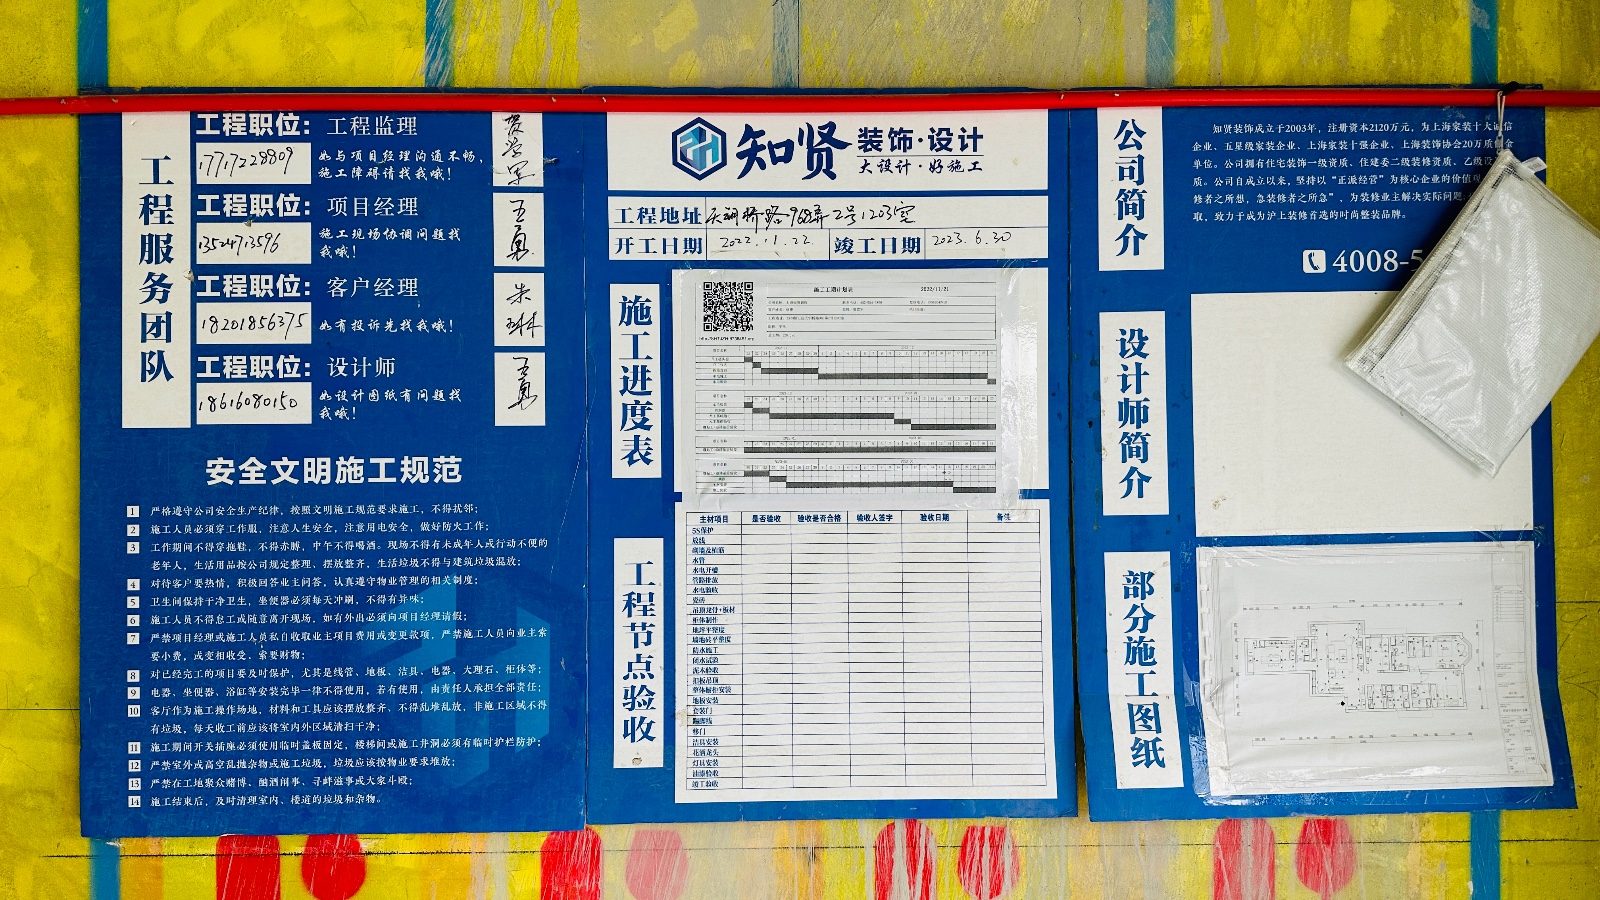 工程服务团队
工程职位：工程监理
17717228809
如与项目经理沟通不畅，
施工障碍请找我哦！
工程职位：项目经理
13524713596
施工现场协调问题找
我哦！
王勇
工程职位：客户经理
18201856375
如有投诉先找我哦！
朱琳
工程职位：设计师
18616080150
如设计图纸有问题找
我哦！
王勇
安全文明施工规范
1 严格遵守公司安全生产纪律，按照文明施工规范要求施工，不得扰邻；
2 施工人员必须穿工作服，注意人生安全，注意用电安全，做好防火工作；
3 工作期间不得穿拖鞋，不得赤膊，中午不得喝酒。现场不得有未成年人或行动不便的
老年人，生活用品按公司规定整理、摆放整齐，生活垃圾不得与建筑垃圾混放；
4 对待客户要热情，积极回答业主问答，认真遵守物业管理的相关制度；
5 卫生间保持干净卫生，坐便器必须每天冲刷，不得有异味；
6 施工人员不得怠工或随意离开现场，如有外出必须向项目经理请假；
7 严禁项目经理或施工人员私自收取业主项目费用或变更款项，严禁施工人员向业主索
要小费，或变相收受、索要财物；
8 对已经完工的项目要及时保护，尤其是线管、地板、洁具、电器、大理石、柜体等；
9 电器、坐便器、浴缸等安装完毕一律不得使用，若有使用，由责任人承担全部责任；
10 客厅作为施工操作场地，材料和工具应该摆放整齐、不得乱堆乱放，非施工区域不得
有垃圾，每天收工前应该将室内外区域清扫干净；
11 施工期间开关插座必须使用临时盖板固定，楼梯间或施工井洞必须有临时护栏防护；
12 严禁室外或高空乱抛杂物或施工垃圾，垃圾应该按物业要求堆放；
13 严禁在工地聚众赌博、酗酒闹事、寻衅滋事或大家斗殴；
14 施工结束后，及时清理室内、楼道的垃圾和杂物。
知贤 装饰·设计
大设计·好施工
工程地址 天钥桥路968弄2号1203室
开工日期 2022.11.22. 竣工日期 2023.6.30
施工进度表
施工工期计划表 2022/11/21
工程节点验收
主材项目 是否验收 验收是否合格 验收人签字 验收日期 备注
5S保护
放线
砌墙及植筋
水管
水电开槽
管路排放
水电验收
瓷砖
吊顶龙骨+板材
柜体制作
地坪平整度
墙地砖平整度
防水施工
闭水试验
泥木验收
扣板吊顶
整体橱柜安装
地板安装
套装门
踢脚线
移门
洁具安装
花洒龙头
灯具安装
油漆验收
竣工验收
公司简介
知贤装饰成立于2003年，注册资本2120万元，为上海家装十大诚信
企业、五星级家装企业、上海家装十强企业、上海装饰协会20万质保金
单位。公司拥有住宅装饰一级资质、住建委二级装修资质、乙级设
质。公司自成立以来，坚持以“正派经营”为核心企业的价值观
修者之所想，急装修者之所急”，为装修业主解决实际问题
取，致力于成为沪上装修首选的时尚整装品牌。
4008-5
设计师简介
部分施工图纸